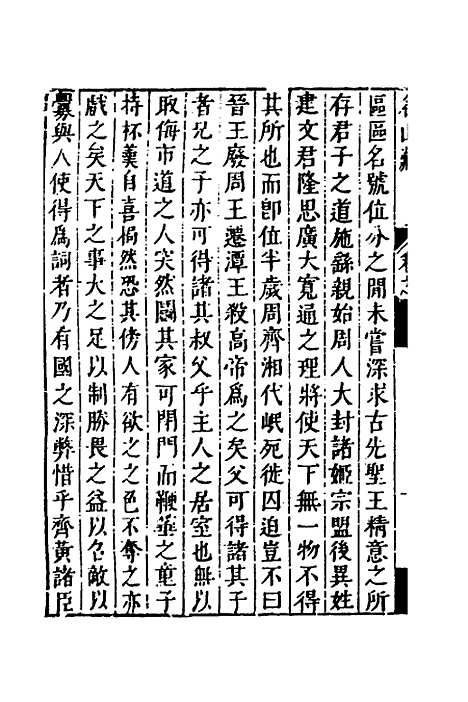 區區名號位分之間未嘗深求古先聖王精意之所
存君子之道施繇親始周人大封諸姬宗盟後異姓
建文君隆思廣大寬通之理將使天下無一物不得
其所也而卽位半歲周齊湘代岷死徙囚迫豈不曰
晉王廢周王遷潭王殺高帝爲之矣父可得諸其子
者兄之子亦可得諸其叔父乎主人之居室也無以
取侮市道之人突然鬬其家可閉門而鞭箠之童子
持杯羹自喜惴然恐其傍人有欲之之色不奪之亦
戲之矣天下之事大之足以制勝畏之益以名敵以
釁與人使得爲詞者乃有國之深弊惜乎齊黃諸臣